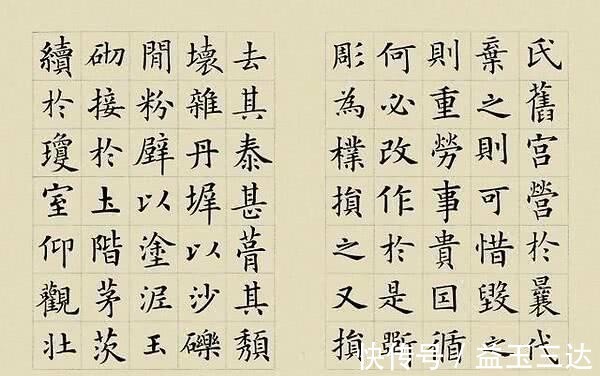 氏舊宮營於曩代
棄之則可惜毀之
則重勞事貴因循
何必改作於是斲
彫為樸損之又損
去其泰甚葺其頹
壞雜丹墀以沙礫
閒粉壁以塗泥玉
砌接於土階茅茨
續於瓊室仰觀壯
快传号 / 益玉三达